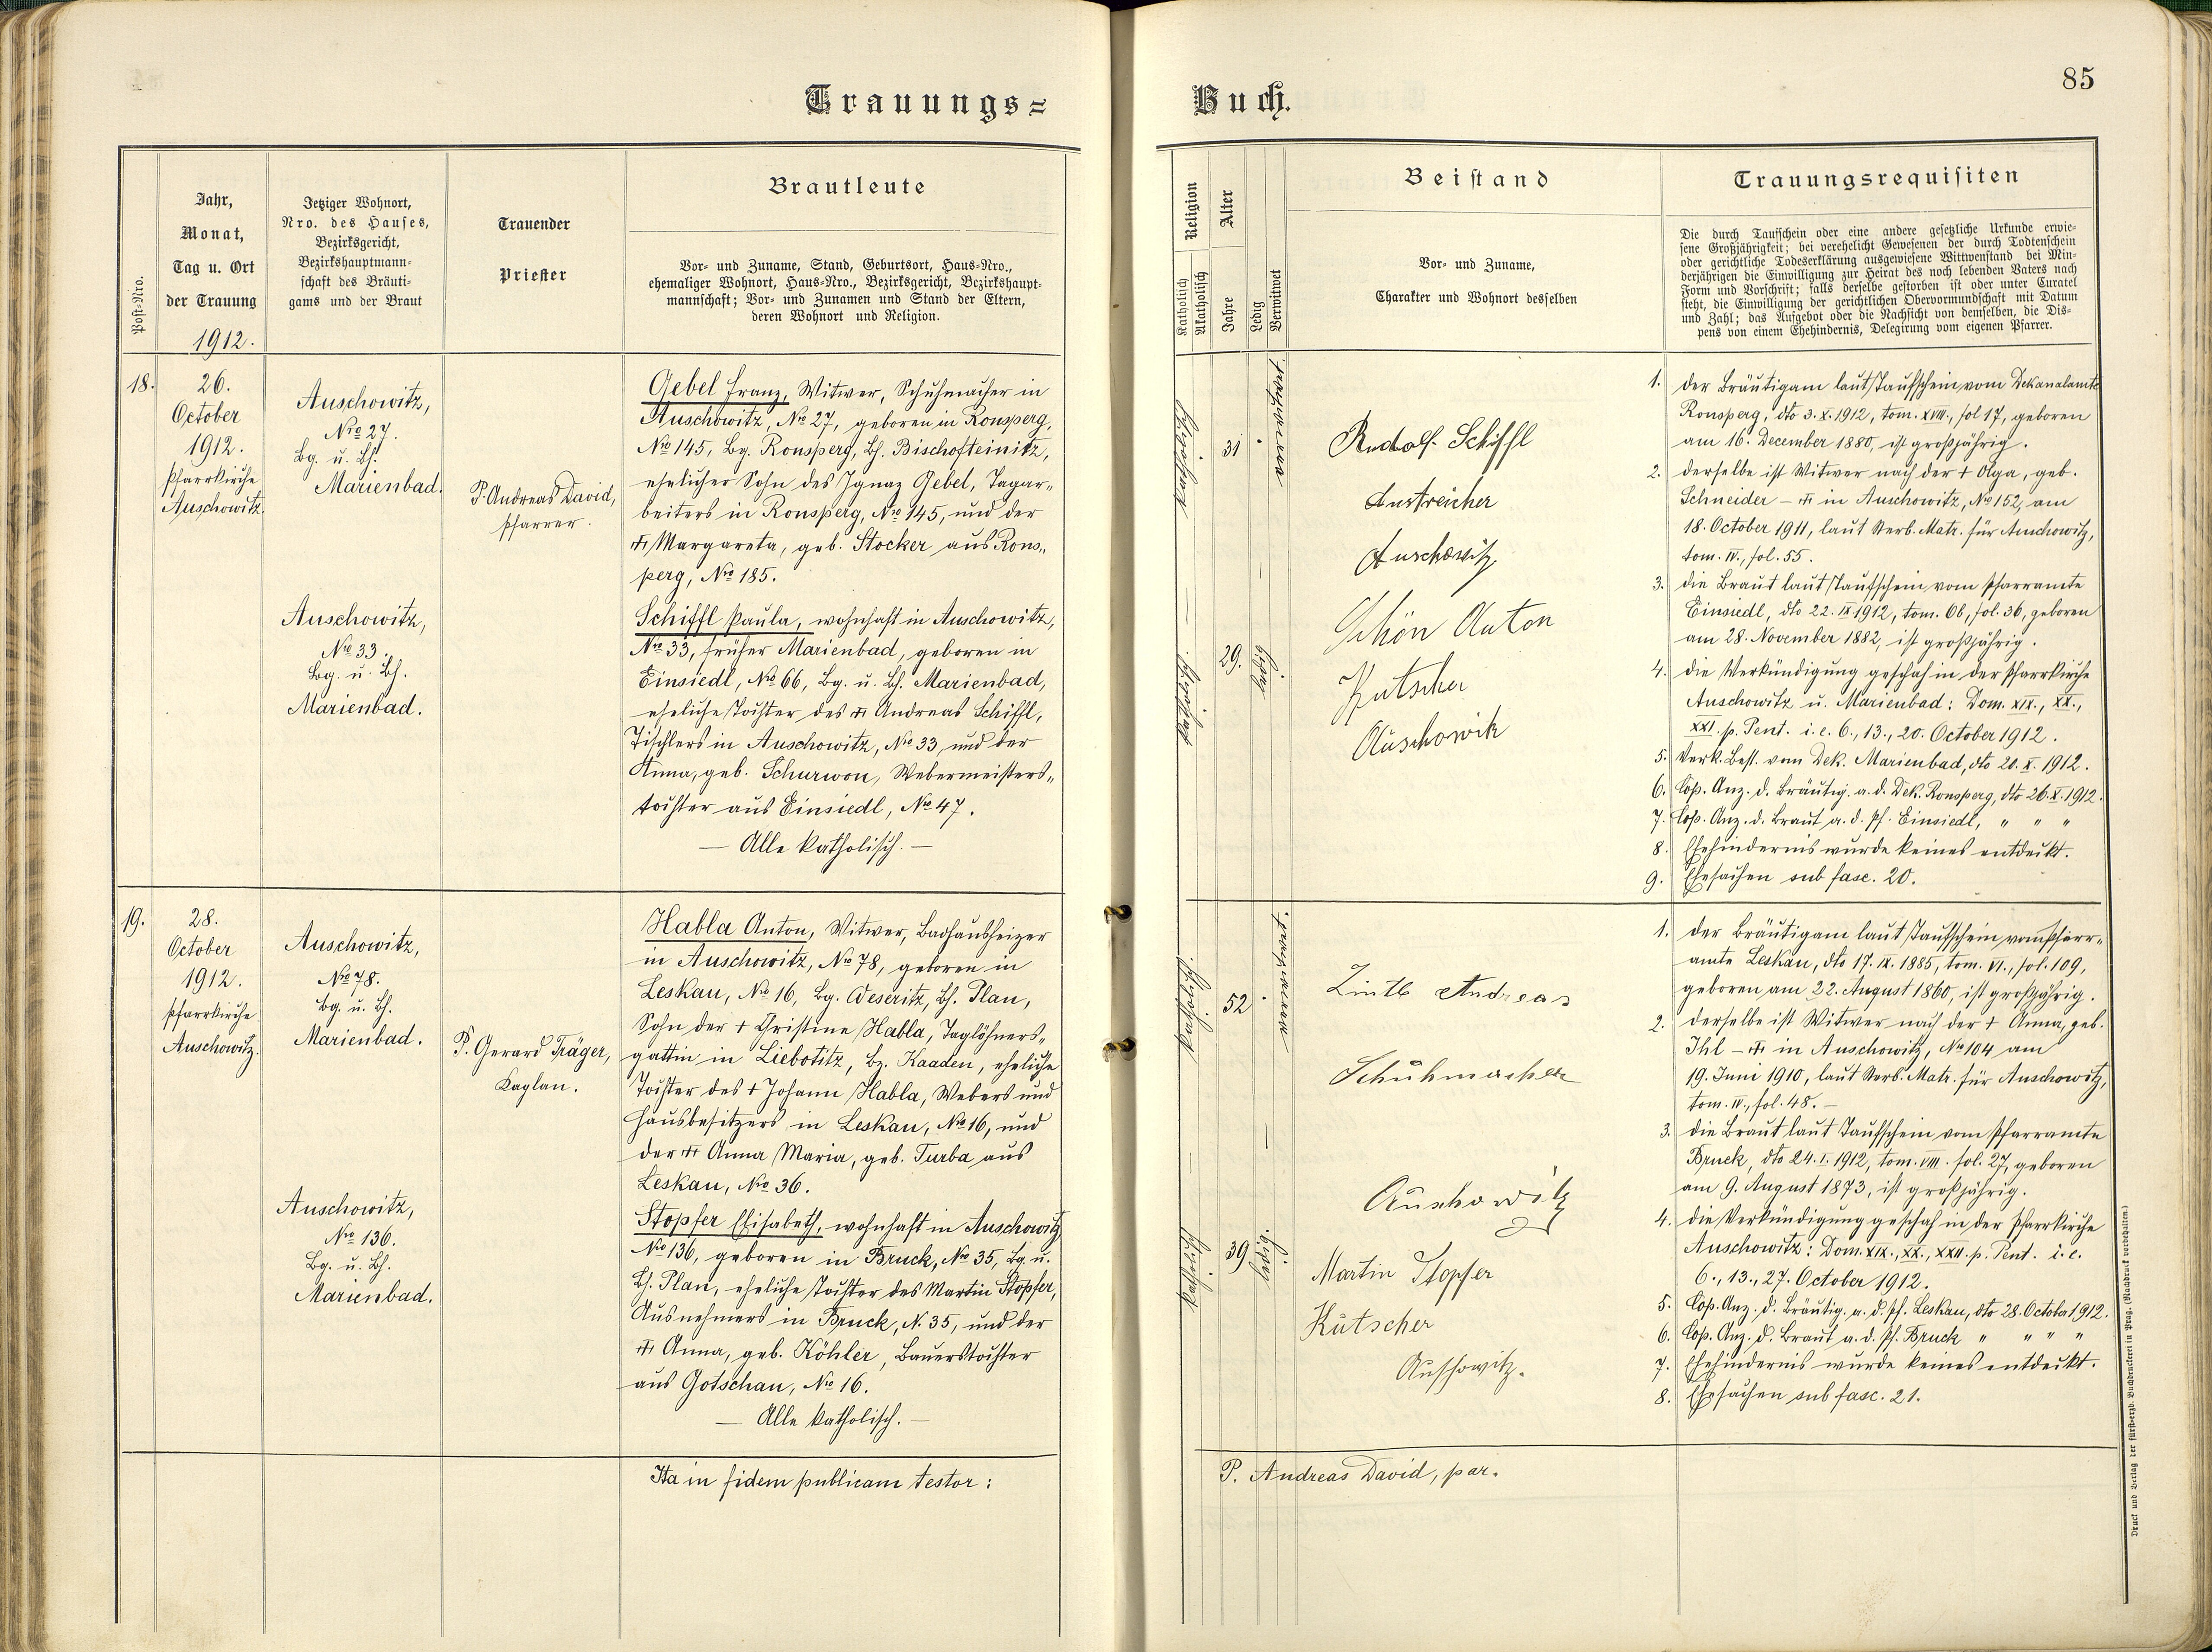 Trauungs=
Buch.
85
Post-Nro.
Jahr,
Monat,
Tag u. Ort
der Trauung
1912.
Jetziger Wohnort,
Nro. des Hauses,
Bezirksgericht,
Bezirkshauptmann-
schaft des Bräuti-
gams und der Braut
Trauender
Priester
Brautleute
Vor- und Zuname, Stand, Geburtsort, Haus-Nro.,
ehemaliger Wohnort, Haus-Nro., Bezirksgericht, Bezirkshaupt-
mannschaft; Vor- und Zunamen und Stand der Eltern,
deren Wohnort und Religion.
Religion
Katholisch
Akatholisch
Alter
Jahre
Ledig
Verwitwet
Beistand
Vor- und Zuname,
Charakter und Wohnort desselben
Trauungsrequisiten
Die durch Taufschein oder eine andere gesetzliche Urkunde erwie-
sene Großjährigkeit; bei verehelicht Gewesenen der durch Todtenschein
oder gerichtliche Todeserklärung ausgewiesene Wittwenstand bei Min-
derjährigen die Einwilligung zur Heirat des noch lebenden Vaters nach
Form und Vorschrift; falls derselbe gestorben ist oder unter Curatel
steht, die Einwilligung der gerichtlichen Obervormundschaft mit Datum
und Zahl; das Aufgebot oder die Nachsicht von demselben, die Dis-
pens von einem Ehehindernis, Delegirung vom eigenen Pfarrer.
18.
26.
October
1912.
Pfarrkirche
Auschowitz.
Auschowitz,
Nro 27.
Bg. u. Bh.
Marienbad.
Auschowitz,
Nro 33.
Bg. u. Bh.
Marienbad.
P. Andreas David,
Pfarrer.
Gebel Franz, Witwer, Schuhmacher in
Auschowitz, Nro 27, geboren in Ronsperg,
Nro 145, Bg. Ronsperg, Bh. Bischofteinitz,
ehelicher Sohn des Ignaz Gebel, Tagar-
beiters in Ronsperg, Nro 145, und der
† Margareta, geb. Stocker aus Rons-
perg, Nro 185.
Schiffl Paula, wohnhaft in Auschowitz,
Nro 33, früher Marienbad, geboren in
Einsiedl, Nro 66, Bg. u. Bh. Marienbad,
eheliche Tochter des † Andreas Schiffl,
Tischlers in Auschowitz, Nro 33, und der
Anna, geb. Schurwon, Webermeisters-
tochter aus Einsiedl, Nro 47.
— Alle katholisch. —
katholisch
31
verwitwet.
katholisch
29.
ledig
Rudolf Schiffl
Anstreicher
Auschowitz
Schön Anton
Kutscher
Auschowitz
1. der Bräutigam laut Taufschein vom Dekanalamte
Ronsperg, dto 3. X. 1912, tom. XVIII., fol 17, geboren
am 16. December 1880, ist großjährig.
2. derselbe ist Witwer nach der † Olga, geb.
Schneider – † in Auschowitz, Nro 152, am
18. October 1911, laut Sterb. Matr. für Auschowitz,
tom. IV., fol. 55.
3. die Braut laut Taufschein vom Pfarramte
Einsiedl, dto 22. IX 1912, tom. 6b, fol. 36, geboren
am 28. November 1882, ist großjährig.
4. die Verkündigung geschah in der Pfarrkirche
Auschowitz u. Marienbad: Dom. XIX., XX.,
XXI. p. Pent. i. e. 6., 13., 20. October 1912.
5. Verk. Best. vom Dek. Marienbad, dto 20. X. 1912.
6. Cop. Anz. d. Bräutig. a. d. Dek. Ronsperg, dto 26. X. 1912.
7. Cop. Anz. d. Braut a. d. Pf. Einsiedl, " " "
8. Ehehindernis wurde keines entdeckt.
9. Ehesachen sub fasc. 20.
19.
28.
October
1912.
Pfarrkirche
Auschowitz.
Auschowitz,
Nro 78.
Bg. u. Bh.
Marienbad.
Auschowitz,
Nro 136.
Bg. u. Bh.
Marienbad.
P. Gerard Träger,
Kaplan.
Habla Anton, Witwer, Badhausheizer
in Auschowitz, Nro 78, geboren in
Leskau, Nro 16, Bg. Weseritz, Bh. Plan,
Sohn der † Christine Habla, Taglöhners-
gattin in Liebotitz, Bz. Kaaden, eheliche
Tochter des † Johann Habla, Webers und
Hausbesitzers in Leskau, Nro 16, und
der † Anna Maria, geb. Turba aus
Leskau, Nro 36.
Stopfer Elisabeth, wohnhaft in Auschowitz
Nro 136, geboren in Bruck, Nro 35, Bg. u.
Bh. Plan, eheliche Tochter des Martin Stopfer,
Ausnehmers in Bruck, N. 35, und der
† Anna, geb. Köhler, Bauerstochter
aus Gotschau, Nro 16.
— Alle katholisch. —
katholisch
52
verwitwet.
katholisch
39
ledig.
Zintl Andreas
Schuhmacher
Auschowitz
Martin Stopfer
Kutscher
Auschowitz.
1. der Bräutigam laut Taufschein vom Pfarr-
amte Leskau, dto 17. IX. 1885, tom. VI., fol. 109,
geboren am 22. August 1860, ist großjährig.
2. derselbe ist Witwer nach der † Anna, geb.
Ihl – † in Auschowitz, Nro 104 am
19. Juni 1910, laut Sterb. Matr. für Auschowitz,
tom. IV., fol. 48. –
3. die Braut laut Taufschein vom Pfarramte
Bruck, dto 24. I. 1912, tom. VIII. fol. 27, geboren
am 9. August 1873, ist großjährig.
4. die Verkündigung geschah in der Pfarrkirche
Auschowitz: Dom. XIX., XX., XXII. p. Pent. i. e.
6., 13., 27. October 1912.
5. Cop. Anz. d. Bräutig. a. d. Pf. Leskau, dto 28. October 1912.
6. Cop. Anz. d. Braut a. d. Pf. Bruck " " " "
7. Ehehindernis wurde keines entdeckt.
8. Ehesachen sub fasc. 21.
Ita in fidem publicam testor:
P. Andreas David, par.
Druck und Verlag der fürsterzb. Buchdruckerei in Prag. (Nachdruck vorbehalten.)